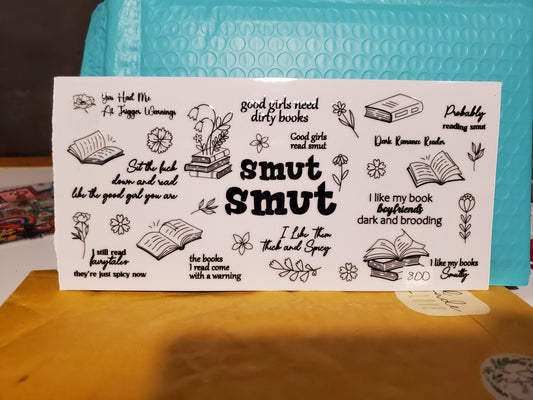 You Had Me
At Trigger Warnings
good girls need
dirty books
Probably
reading smut
Good girls
read smut
Dark Romance Reader
smut
smut
Sit the fuck
down and read
like the good girl you are
I like my book
boyfriends
dark and brooding
I Like Them
Thick and Spicy
I still read
fairytales
they're just spicy now
the books
I read come
with a warning
I like my books
Smutty
300